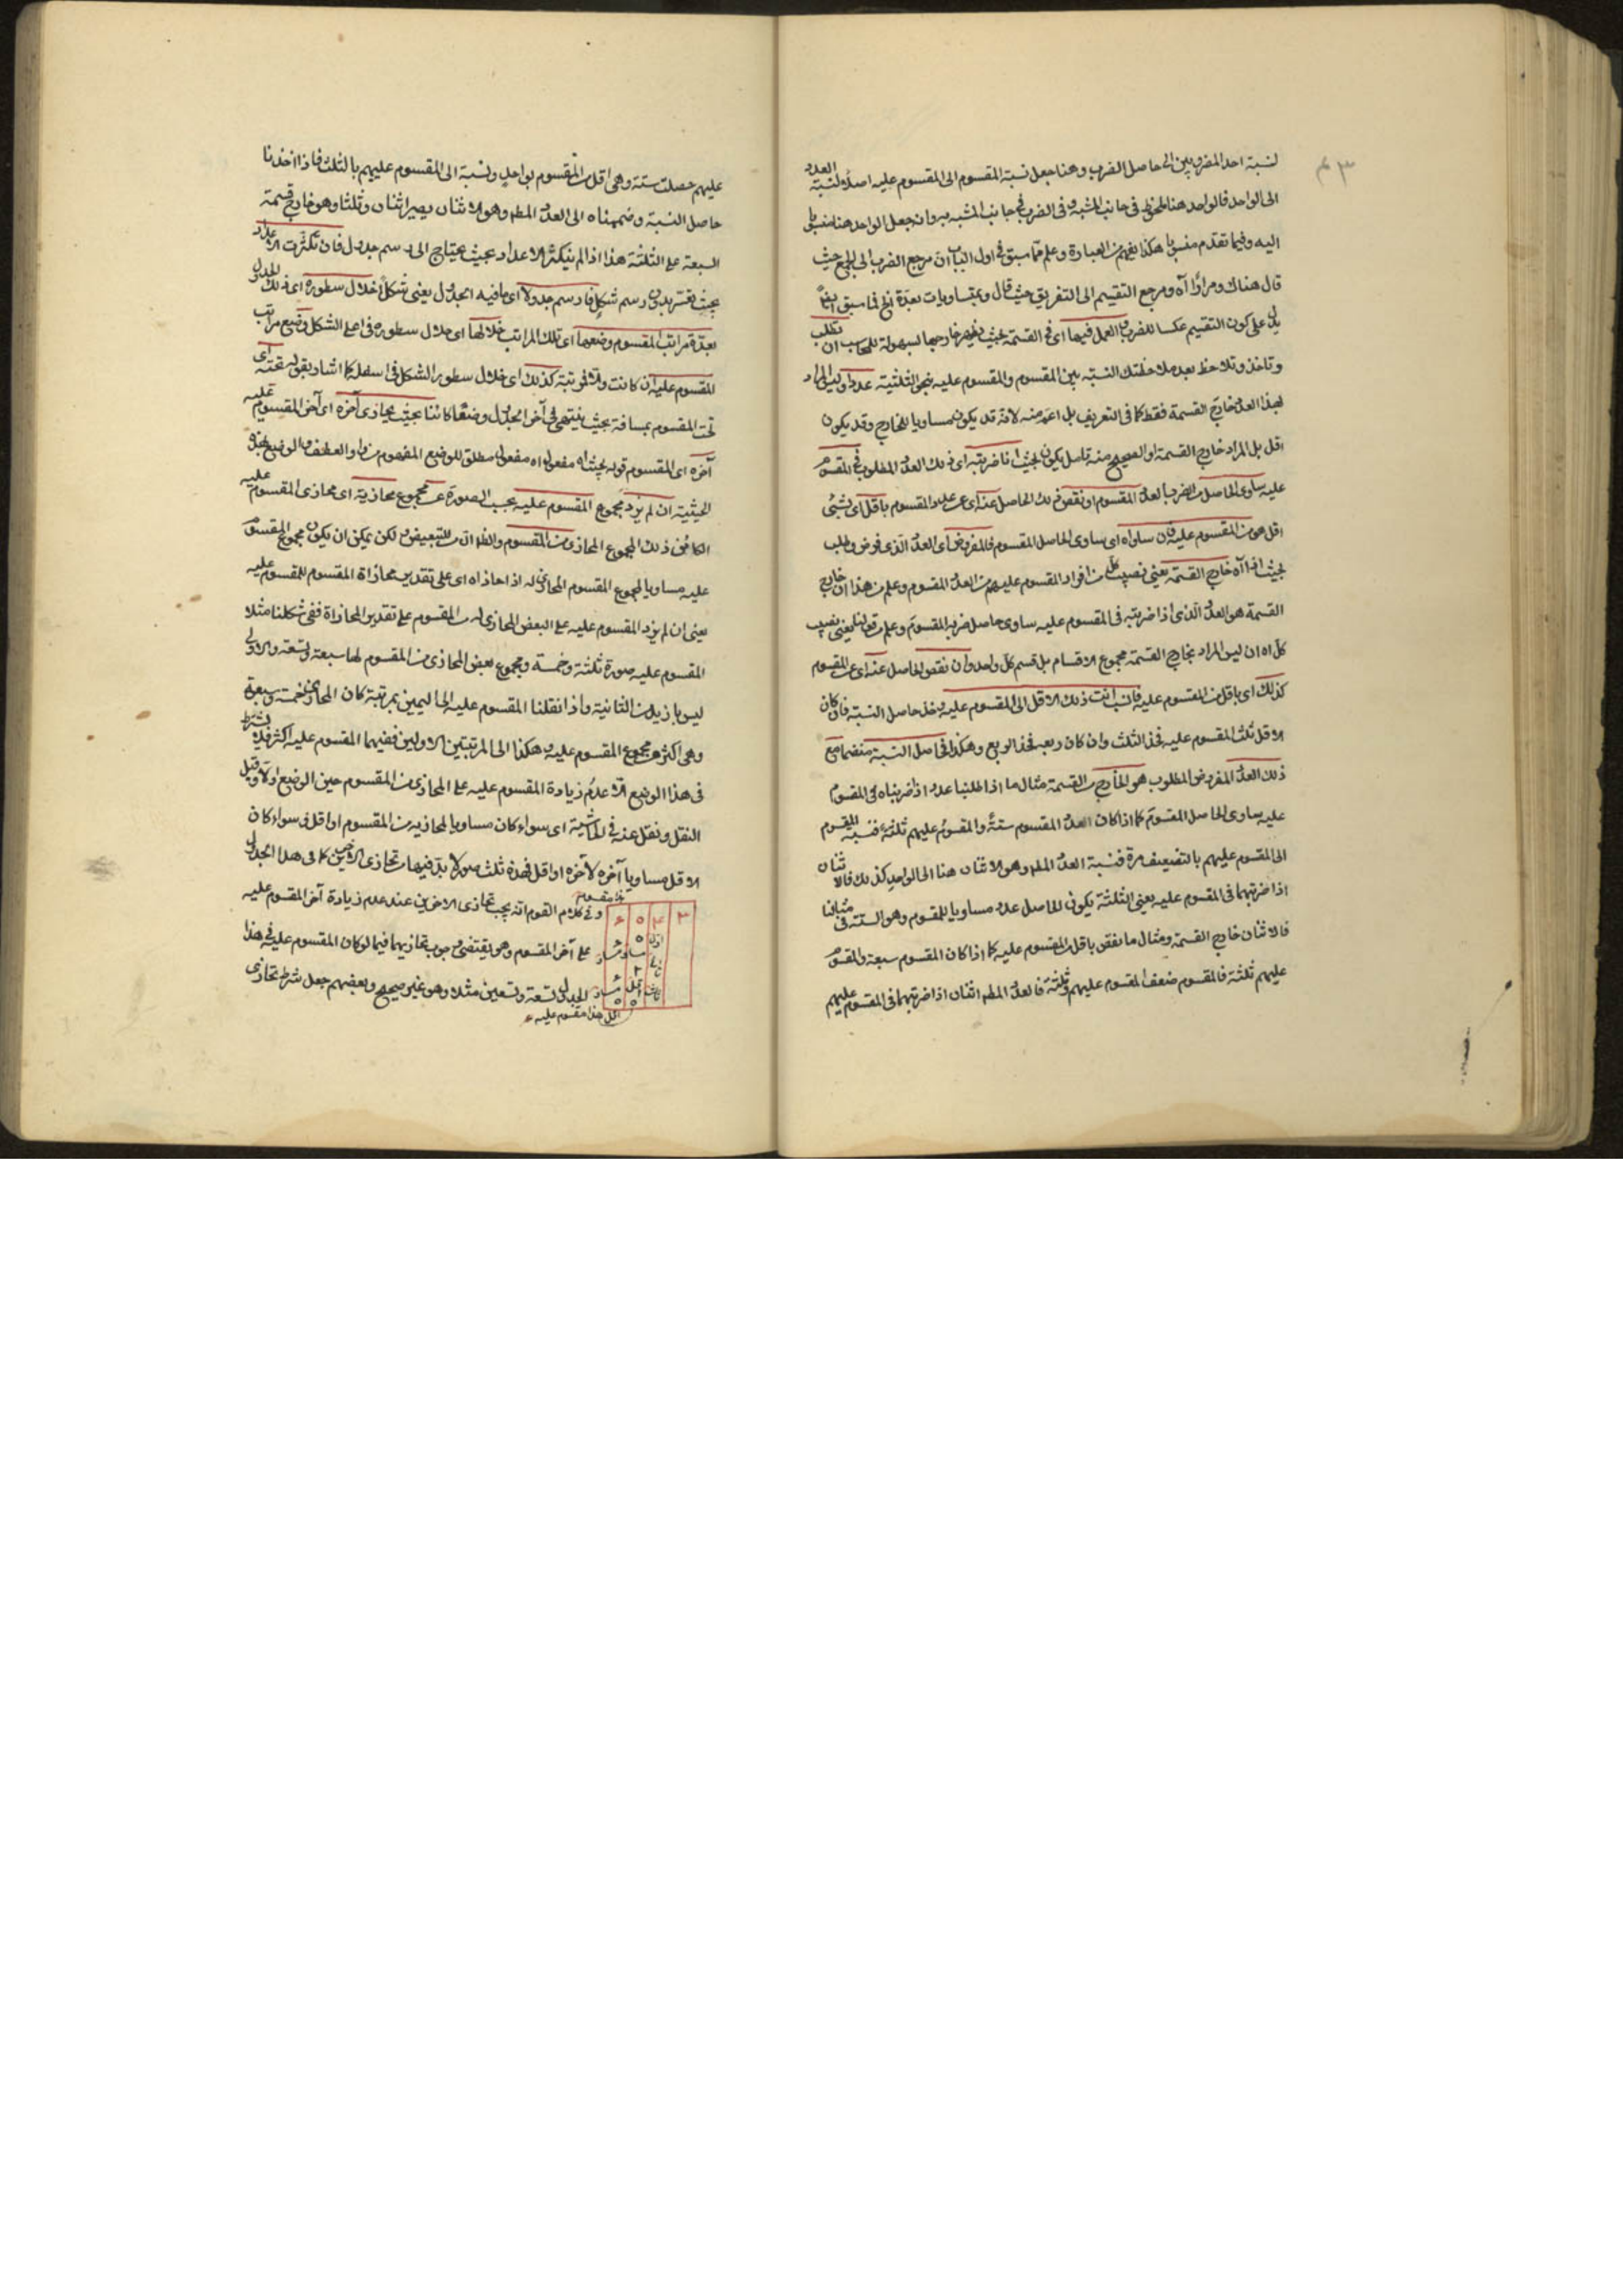 ٤٣
نسبة احد المضروبين الى حاصل الضرب وهنا جعل نسبة المقسوم الى المقسوم عليه اصلا ونسبة العدد
الى الواحد فالواحد هنا ملحوظ فى جانب المشبه وفى الضرب فى جانب المشبه به وانه جعل الواحد هنا منسوبا
اليه وفيما تقدم منسوبا هكذا يفهم من العبارة وعلم مما سبق فى اول الباب ان مرجع الضرب الى الجمع حيث
قال هناك ومرارا آه ومرجع التقسيم الى التفريق حيث قال وبمتساويات بعدة الخ فما سبق ايضا
يدل على كون التقسيم عكسا للضرب والعمل فيها اى فى القسمة بحيث يظهر خارجها بسهولة للحاسب ان تطلب
وتأخذ وتلاحظ بعد ملاحظتك النسبة بين المقسوم والمقسوم عليه بنحو الثلثية عددا وليس المراد
بهذا العدد خارج القسمة فقط كما فى التعريف بل اعم منه لانه قد يكون مساويا للخارج وقد يكون
اقل بل المراد خارج القسمة او الصحيح منه تأمل يكون بحيث اذا ضربته اى ذلك العدد المطلوب فى المقسوم
عليه ساوى الحاصل من الضرب العدد المقسوم او نقص ذلك الحاصل عنه اى عن عدد المقسوم باقل اى بشئ
اقل هو من المقسوم عليه فان ساواه اى ساوى الحاصل المقسوم فالمفروض اى العدد الذى فرض وطلب
بحيث اذا آه خارج القسمة يعنى نصيب كل من افراد المقسوم عليهم من العدد المقسوم وعلم من هذا ان خارج
القسمة هو العدد الذى اذا ضربته فى المقسوم عليه ساوى حاصل ضربه المقسوم وعلم من قولنا يعنى نصيب
كل آه ان ليس المراد بخارج القسمة مجموع الاقسام بل قسم كل واحد وان نقص الحاصل عنه اى عن المقسوم
كذلك اى باقل من المقسوم عليه فانسب انت ذلك الاقل الى المقسوم عليه وخذ حاصل النسبة فان كان
الاقل ثلث المقسوم عليه فخذ الثلث وان كان ربعه فخذ الربع وهكذا فحاصل النسبة منضما مع
ذلك العدد المفروض المطلوب هو الخارج من القسمة مثال ما اذا طلبنا عددا اذا ضربناه فى المقسوم
عليه يساوى الحاصل المقسوم كما اذا كان العدد المقسوم ستة والمقسوم عليهم ثلثة فنسبة المقسوم
الى المقسوم عليهم بالتضعيف مرة فنسبة العدد المط وهو الاثنان هنا الى الواحد كذلك فالاثنان
اذا ضربتهما فى المقسوم عليه يعنى الثلثة يكون الحاصل عدد مساويا للمقسوم وهو الستة فى مثالنا
فالاثنان خارج القسمة ومثال ما نقص باقل من المقسوم عليه كما اذا كان المقسوم سبعة والمقسوم
عليهم ثلثة فالمقسوم ضعف المقسوم عليهم وثلثه فالعدد المط اثنان اذا ضربتهما فى المقسوم عليهم
عليهم حصلت ستة وهى اقل من المقسوم بواحد ونسبته الى المقسوم عليهم بالثلث فاذا اخذنا
حاصل النسبة وضممناه الى العدد المط وهو الاثنان يصير اثنان وثلثا وهو خارج قسمة
السبعة على الثلثة هذا اذا لم يتكثر الاعداد بحيث يحتاج الى رسم جدول فان تكثرت الاعداد
بحيث تعسر بدون رسم شكل فارسم جدولا اى ما فيه الجدول يعنى شكلا خلال سطوره اى ذلك الجدول
بعدة مراتب المقسوم وضعها اى تلك المراتب خلالها اى خلال سطوره فى اعلى الشكل وضع مراتب
المقسوم عليه ان كانت والا فمرتبة كذلك اى خلال سطور الشكل فى اسفله كما اشار بقوله تحته اى
تحت المقسوم بمسافة بحيث ينتهى الى آخر الجدول وضعا كائنا بحيث يحاذى آخره اى آخر المقسوم عليه
آخره اى المقسوم قوله بحيث آه مفعول او مفعول مطلق للوضع المفهوم من واو العطف والوضع بهذه
الحيثية ان لم يزد مجموع المقسوم عليه بحسب الصورة عن مجموع محاذيه اى محاذى المقسوم عليه
الكائن ذلك المجموع المحاذى من المقسوم والظ ان من للتبعيض لكن يمكن ان يكون مجموع المقسوم
عليه مساويا لمجموع المقسوم المحاذى له اذا حاذاه اى على تقدير محاذاة المقسوم للمقسوم عليه
يعنى ان لم يزد المقسوم عليه على البعض المحاذى له من المقسوم على تقدير المحاذاة ففى شكلنا مثلا
المقسوم عليه صورة ثلثة وخمسة ومجموع بعض المحاذى من المقسوم لها سبعة وتسعة والاولى
ليس بازيد من الثانية واذا نقلنا المقسوم عليه الى اليمين بمرتبة كان المحاذى خمسة وسبعة
وهى اكثر من مجموع المقسوم عليه وهكذا الى المرتبتين الاوليين ففيهما المقسوم عليه اكثر فلا يشترط
فى هذا الوضع الا عدم زيادة المقسوم عليه على المحاذى من المقسوم حين الوضع اولا وقبل
النقل ونقل عنه فى الحاشية اى سواء كان مساويا لمحاذيه من المقسوم او اقل سواء كان
الاقل مساويا آخره لآخره او اقل فهذه ثلث صور لا بد فيها من تحاذى الآخرين كما فى هذا الجدول
هذا مقسوم
وفى كلام القوم انه يجب تحاذى الآخرين عند عدم زيادة آخر المقسوم عليه
على آخر المقسوم وهو يقتضى وجوب تحاذيهما فيما لو كان المقسوم عليه فى هذا
الجدول تسعة وتسعين مثلا وهو غير صحيح وبعضهم جعل شرط تحاذى
٤ ٥ ٤ ٣
اكل هذا مقسوم عليه